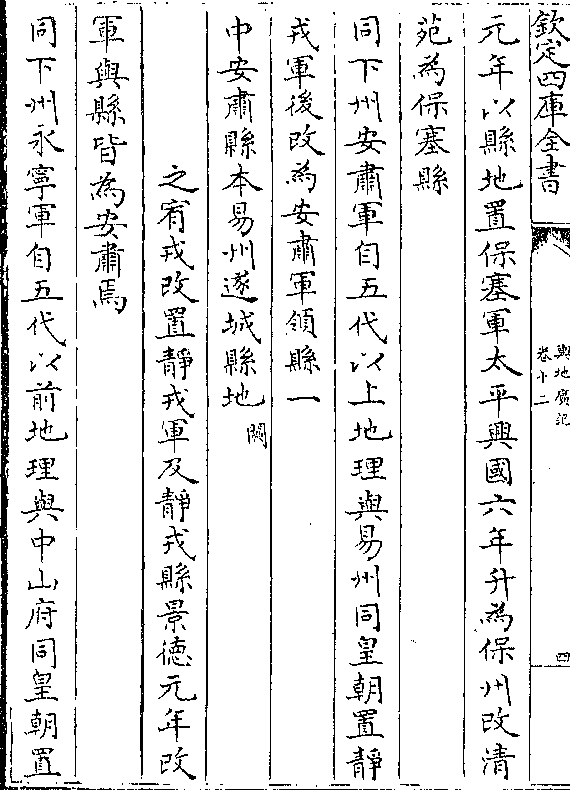 欽定四庫全書
輿地廣記
卷十二
四
元年以縣地置保塞軍太平興國六年升為保州改清
苑為保塞縣
同下州安肅軍自五代以上地理與易州同皇朝置靜
戎軍後改為安肅軍領縣一
中安肅縣本易州遂城縣地闕
之宥戎改置靜戎軍及靜戎縣景德元年改
軍與縣皆為安肅焉
同下州永寧軍自五代以前地理與中山府同皇朝置